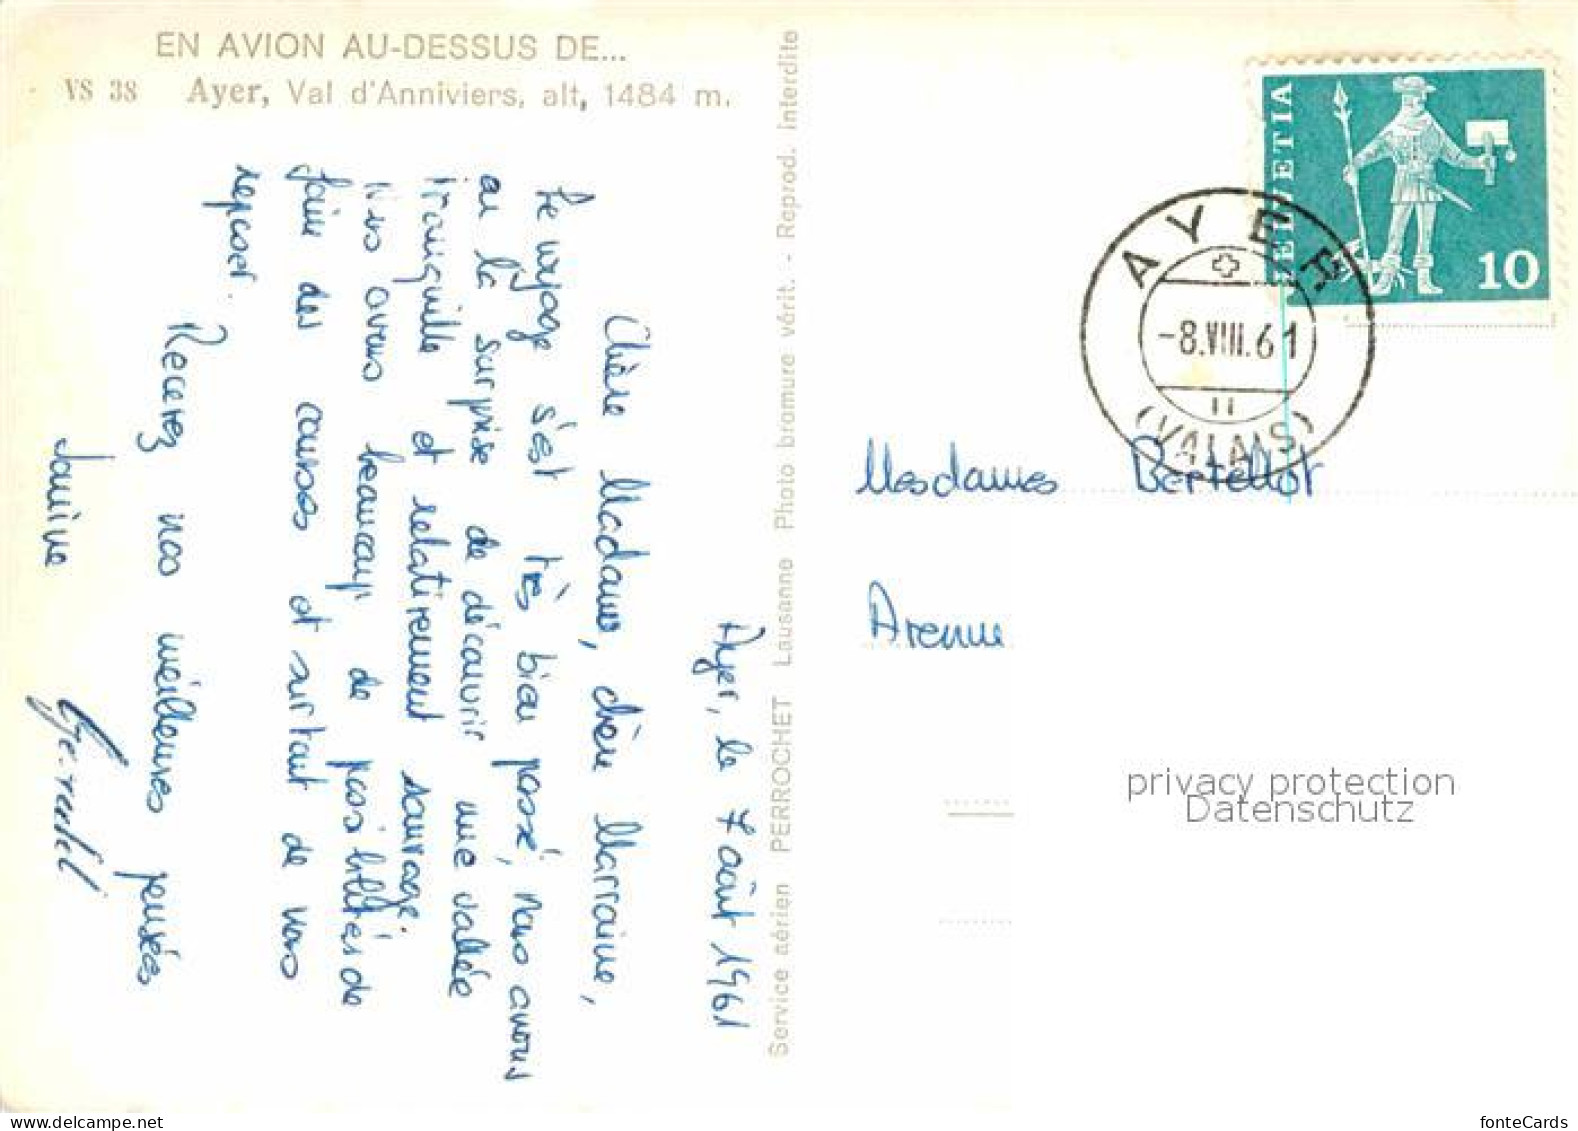 EN AVION AU-DESSUS DE...
VS 38 Ayer, Val d'Anniviers, alt, 1484 m.
Ayer, le 7 août 1961
Chère Madame, chère Marraine,
Le voyage s'est très bien passé, nous avons
eu la surprise de découvrir une vallée
tranquille et relativement sauvage.
Nous avons beaucoup de possibilités de
faire des courses et surtout de nous
reposer.
Recevez nos meilleures pensées
Janine
Service aérien PERROCHET Lausanne Photo bromure vérit. - Reprod. interdite
HELVETIA
10
AYER
-8.VIII.61
(VALAIS)
Mesdames Bertellot
Avenue
privacy protection
Datenschutz
fonteCards